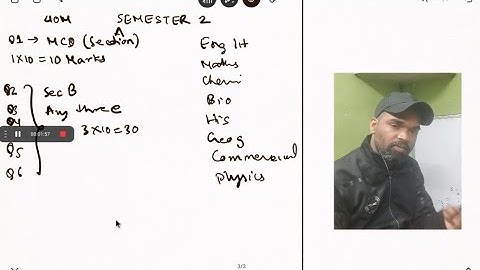 40M SEMESTER 2
Q1 → MCQ (Section A)
1x10 = 10 Marks
Q2 Sec B
Q3 Any three
Q4 3x10=30
00:01:57
Q5
Q6
Eng lit
Maths
Chemi
Bio
His
Geog
Commercial
Physics
3/3